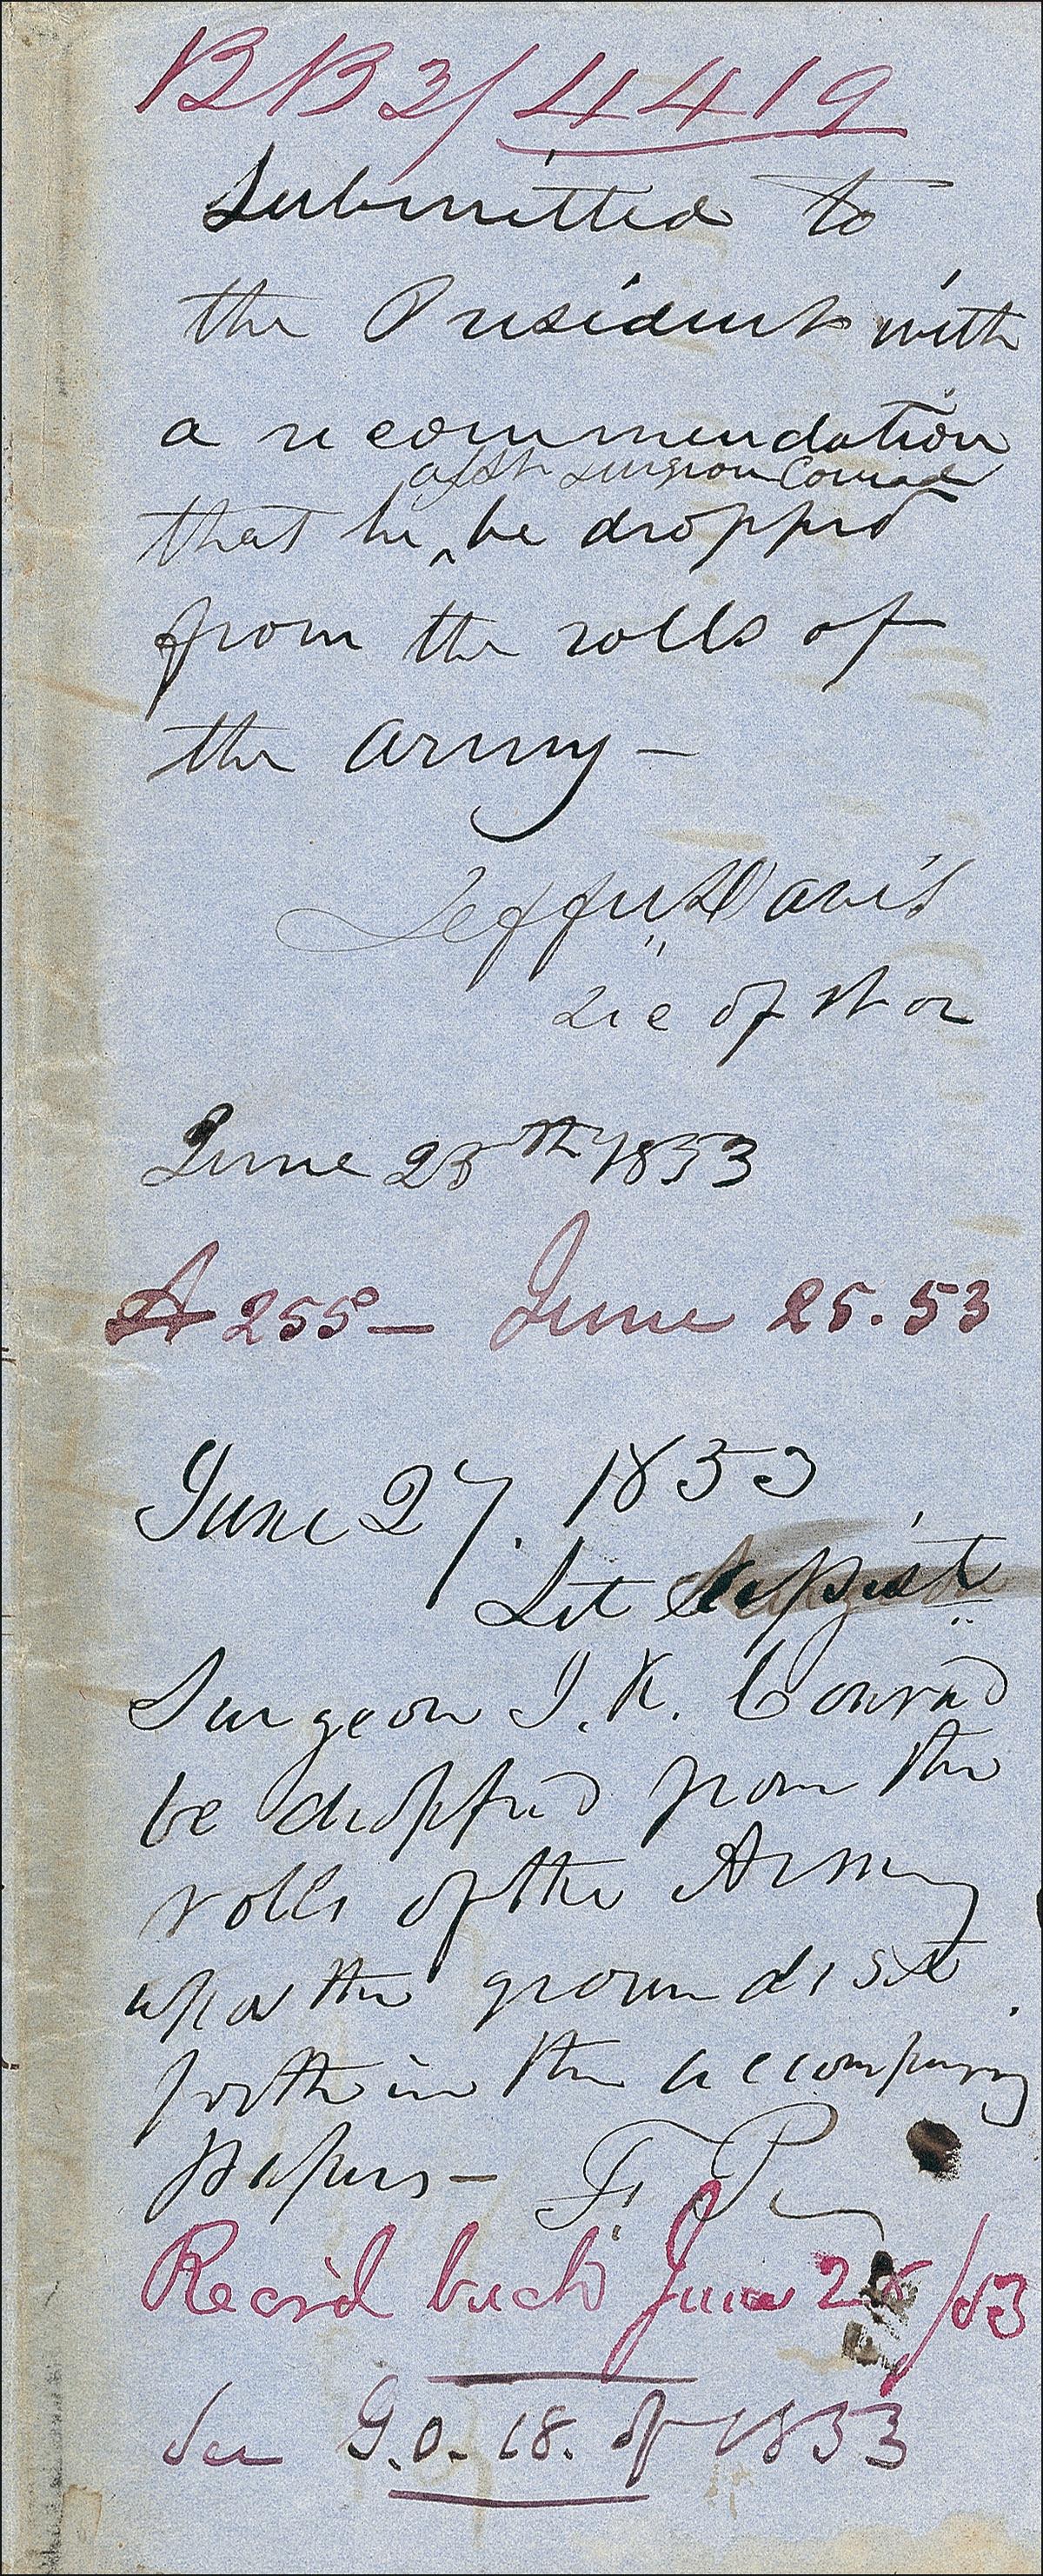 BB3/4419
Submitted to
the President with
a recommendation
asst surgeon Conrad
that he ‸ be dropped
from the rolls of
the army —
Jeffn Davis
Sec of War
June 25th 1853
A 255 — June 25. 53
June 27. 1853
Let Assist
Surgeon J. K. Conrad
be dropped from the
rolls of the Army
upon the grounds set
forth in the accompanying
papers — F. P.
Rec'd back June 28/53
See G.O. 18. of 1853